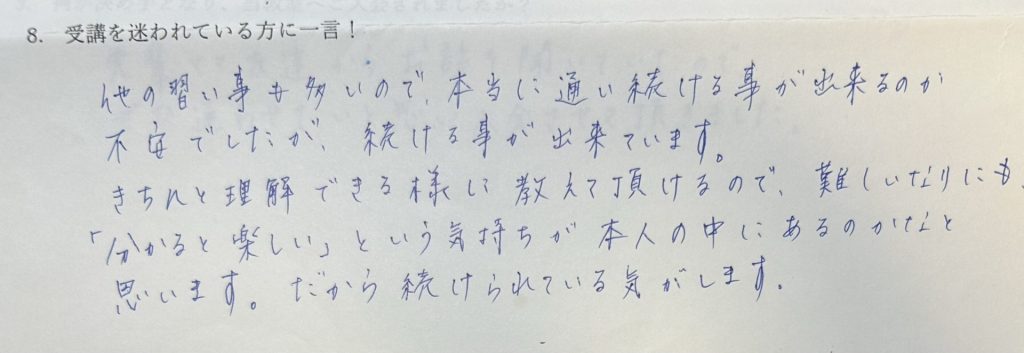 8. 受講を迷われている方に一言！
他の習い事も多いので、本当に通い続ける事が出来るのか
不安でしたが、続ける事が出来ています。
きちんと理解できる様に教えて頂けるので、難しいなりにも、
「分かると楽しい」という気持ちが本人の中にあるのかなと
思います。だから続けられている気がします。